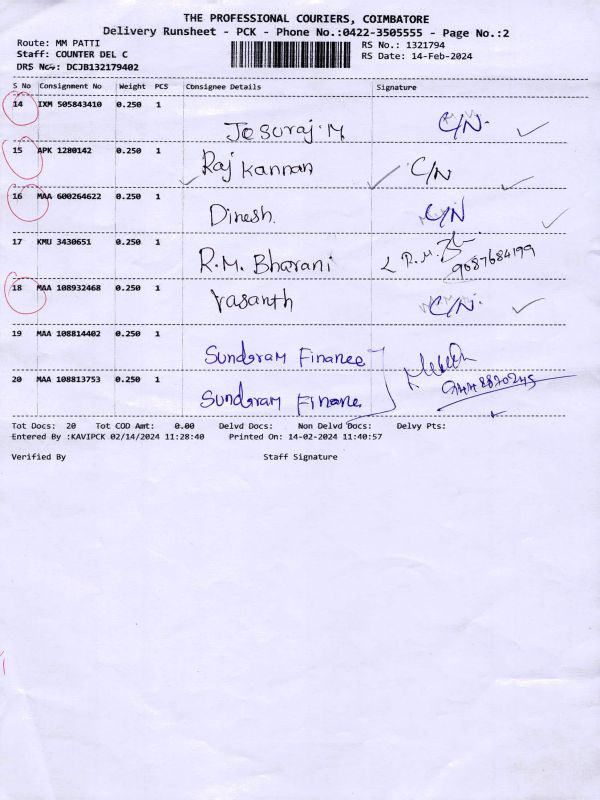 THE PROFESSIONAL COURIERS, COIMBATORE
Delivery Runsheet - PCK - Phone No.:0422-3505555 - Page No.:2
Route: MM PATTI
RS No.: 1321794
Staff: COUNTER DEL C
RS Date: 14-Feb-2024
DRS No.: DCJB132179402
S No Consignment No Weight PCS Consignee Details Signature
14 IXM 505843410 0.250 1
Josuraj.M C/N.
15 APK 1280142 0.250 1
Raj Kannan C/N
16 MAA 600264622 0.250 1
Dinesh. C/N
17 KMU 3430651 0.250 1
R.M. Bharani R.M. 9087684199
18 MAA 108932468 0.250 1
Vasanth C/N.
19 MAA 108814402 0.250 1
Sundgram Finance
20 MAA 108813753 0.250 1
Sundgram Finane
Tot Docs: 20 Tot COD Amt: 0.00 Delvd Docs: Non Delvd Docs: Delvy Pts:
Entered By :KAVIPCK 02/14/2024 11:28:40 Printed On: 14-02-2024 11:40:57
Verified By Staff Signature